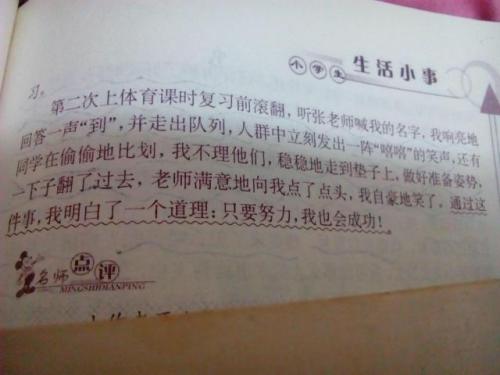 小学生 生活小事
习。
第二次上体育课时复习前滚翻，听张老师喊我的名字，我响亮地
回答一声“到”，并走出队列，人群中立刻发出一阵“嘻嘻”的笑声，还有
同学在偷偷地比划，我不理他们，稳稳地走到垫子上，做好准备姿势，
一下子翻了过去，老师满意地向我点了点头，我自豪地笑了，通过这
件事，我明白了一个道理：只要努力，我也会成功！
名师点评
MINGSHIDIANPING